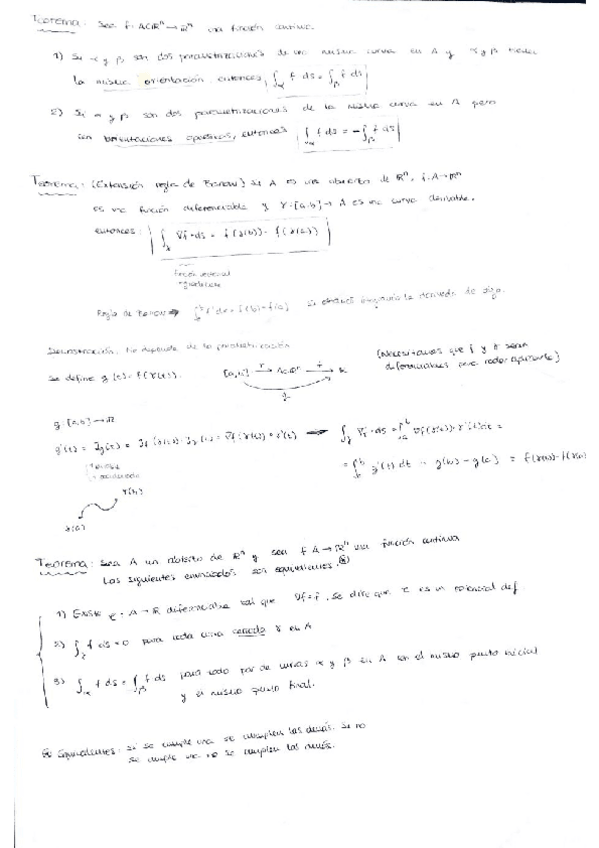 Teorema: Sea f: A⊂ℝⁿ → ℝⁿ una función continua.
1) Si α y β son dos parametrizaciones de una misma curva en A y α y β tienen
la misma orientación, entonces, ∫_α f ds = ∫_β f ds
2) Si α y β son dos parametrizaciones de la misma curva en A pero
con orientaciones opuestas, entonces ∫_α f ds = - ∫_β f ds
Teorema: (Extensión regla de Barrow) Si A es un abierto de ℝⁿ, f: A→ℝⁿ
es una función diferenciable y γ: [a,b] → A es una curva derivable,
entonces: ∫_γ ∇f·ds = f(γ(b)) - f(γ(a))
función vectorial
Regla de Barrow ⇒ ∫_a^b f'dx = f(b) - f(a) Si estamos integrando la derivada de algo.
Demostración: No depende de la parametrización
Se define g(t) = f(γ(t)). [a,b] γ→ A⊂ℝⁿ f→ ℝ
g
(Necesitamos que f y γ sean
diferenciables para poder aplicarlo)
g: [a,b] → ℝ
g'(t) = Jg(t) = Jf(γ(t))·Jγ(t) = ∇f(γ(t))·γ'(t) ⟹ ∫_γ ∇f·ds = ∫_a^b ∇f(γ(t))·γ'(t)dt =
= ∫_a^b g'(t) dt = g(b) - g(a) = f(γ(b)) - f(γ(a))
γ(b)
γ(a)
Teorema: Sea A un abierto de ℝⁿ y sea f: A → ℝⁿ una función continua
Los siguientes enunciados son equivalentes:
1) Existe φ: A → ℝ diferenciable tal que ∇φ = f. Se dice que φ es un potencial de f.
2) ∫_γ f ds = 0 para toda curva cerrada γ en A
3) ∫_α f ds = ∫_β f ds para todo par de curvas α y β en A con el mismo punto inicial
y el mismo punto final.
Equivalentes: si se cumple una se cumplen las demás. Si no
se cumple una no se cumplen las demás.